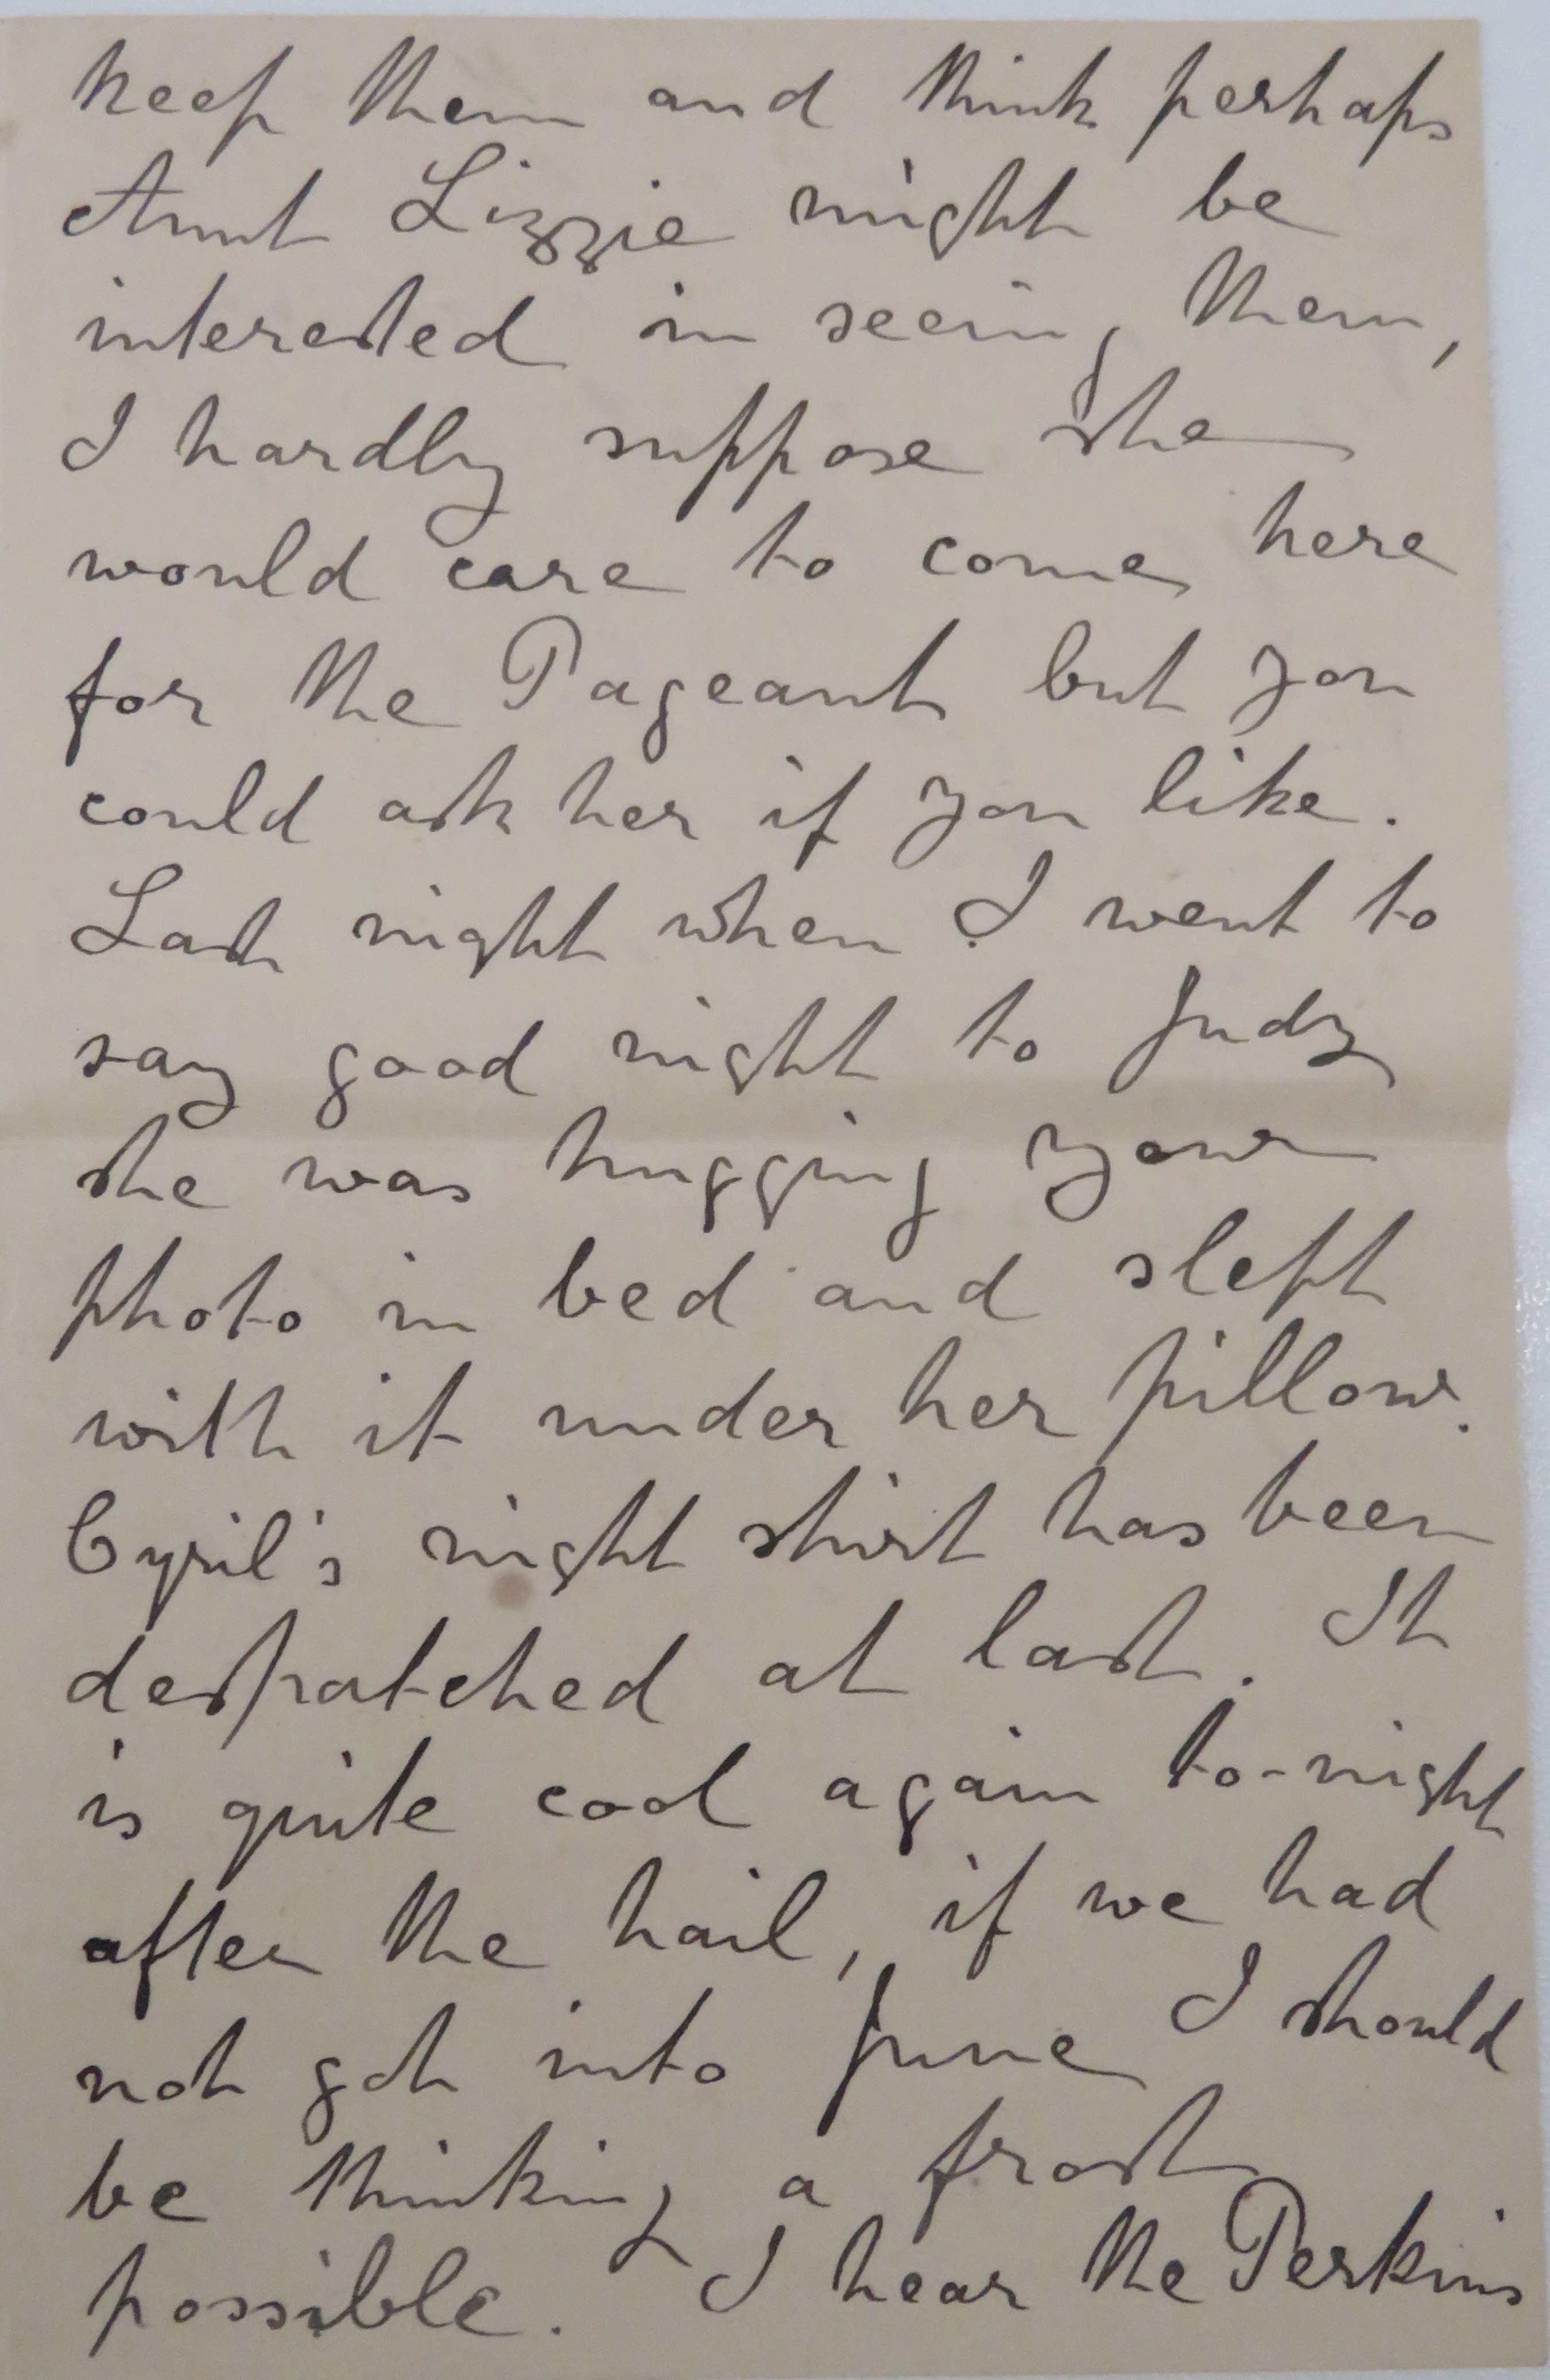 keep them and think perhaps
Aunt Lizzie might be
interested in seeing them,
I hardly suppose she
would care to come here
for the Pageant but you
could ask her if you like.
Last night when I went to
say good night to Judy
she was hugging your
photo in bed and slept
with it under her pillow.
Cyril's night shirt has been
despatched at last. It
is quite cool again to-night
after the hail, if we had
not got into June I should
be thinking a frost
possible. I hear the Perkins